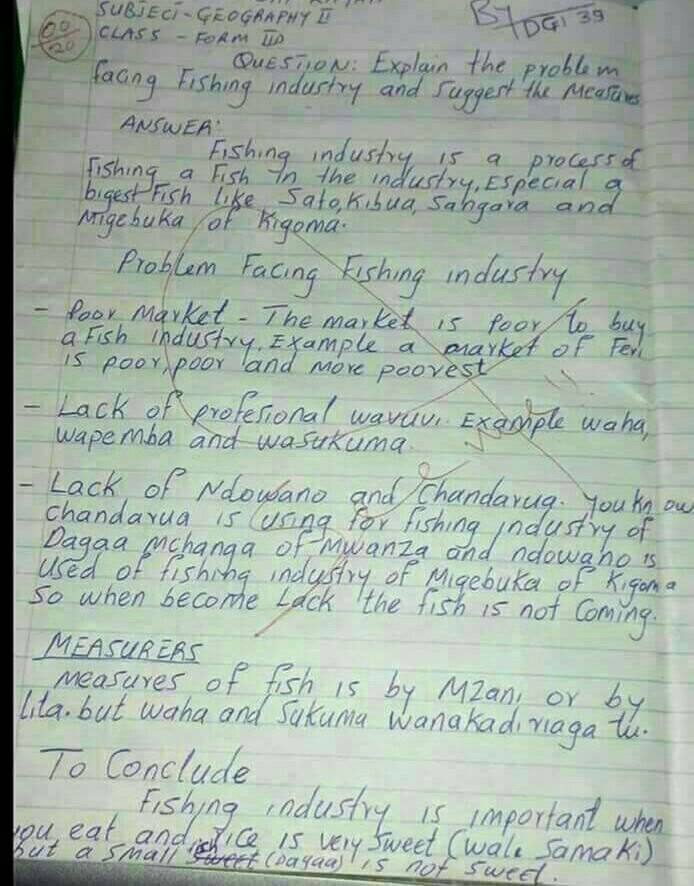 SUBJECT - GEOGRAPHY II
By DGI 39
00/20
CLASS - FORM IID
QUESTION: Explain the problem
facing Fishing industry and suggest the Measures
ANSWER:
Fishing industry is a process of
fishing a Fish In the industry, Especial a
bigest Fish like Sato, Kibua, Sangara and
Migebuka of Kigoma.
Problem Facing Fishing industry
- Poor Market - The market is Poor to buy
a Fish industry. Example a market of Feri
is poor, poor and more poorest
- Lack of profesional wavuvi. Example waha,
wapemba and wasukuma.
- Lack of Ndowano and Chandarua. You know
chandarua is using for fishing industry of
Dagaa Mchanga of Mwanza and ndowano is
used of fishing industry of Migebuka of Kigoma
So when become Lack the fish is not Coming.
MEASURERS
Measures of fish is by Mzani or by
Lita. but waha and Sukuma wanakadiriaga tu.
To Conclude
Fishing industry is important when
you eat and rice is very Sweet (wali Samaki)
but a small fish (Dagaa) is not Sweet.